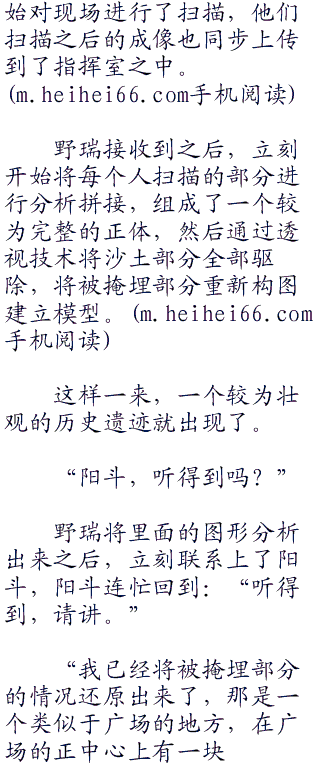 始对现场进行了扫描，他们
扫描之后的成像也同步上传
到了指挥室之中。
(m.heihei66.com手机阅读)
野瑞接收到之后，立刻
开始将每个人扫描的部分进
行分析拼接，组成了一个较
为完整的正体，然后通过透
视技术将沙土部分全部驱
除，将被掩埋部分重新构图
建立模型。(m.heihei66.com
手机阅读)
这样一来，一个较为壮
观的历史遗迹就出现了。
“阳斗，听得到吗？”
野瑞将里面的图形分析
出来之后，立刻联系上了阳
斗，阳斗连忙回到：“听得
到，请讲。”
“我已经将被掩埋部分
的情况还原出来了，那是一
个类似于广场的地方，在广
场的正中心上有一块